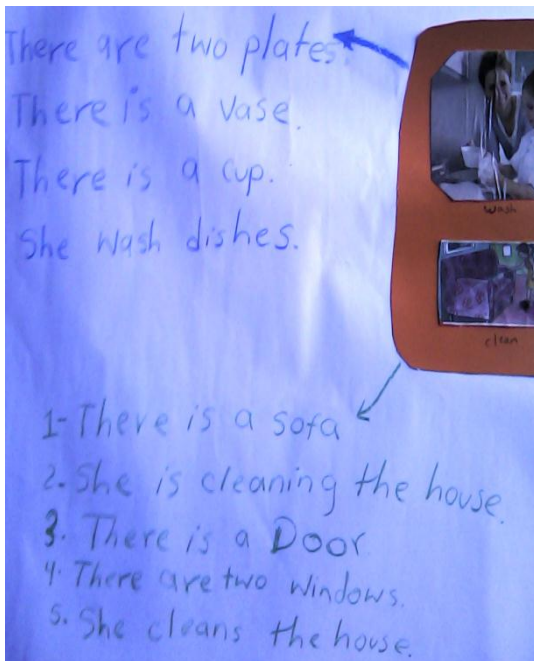 There are two plates.
There is a vase.
There is a cup.
She wash dishes.
wash
clean
1- There is a sofa
2. She is cleaning the house.
3. There is a Door
4. There are two windows.
5. She cleans the house.